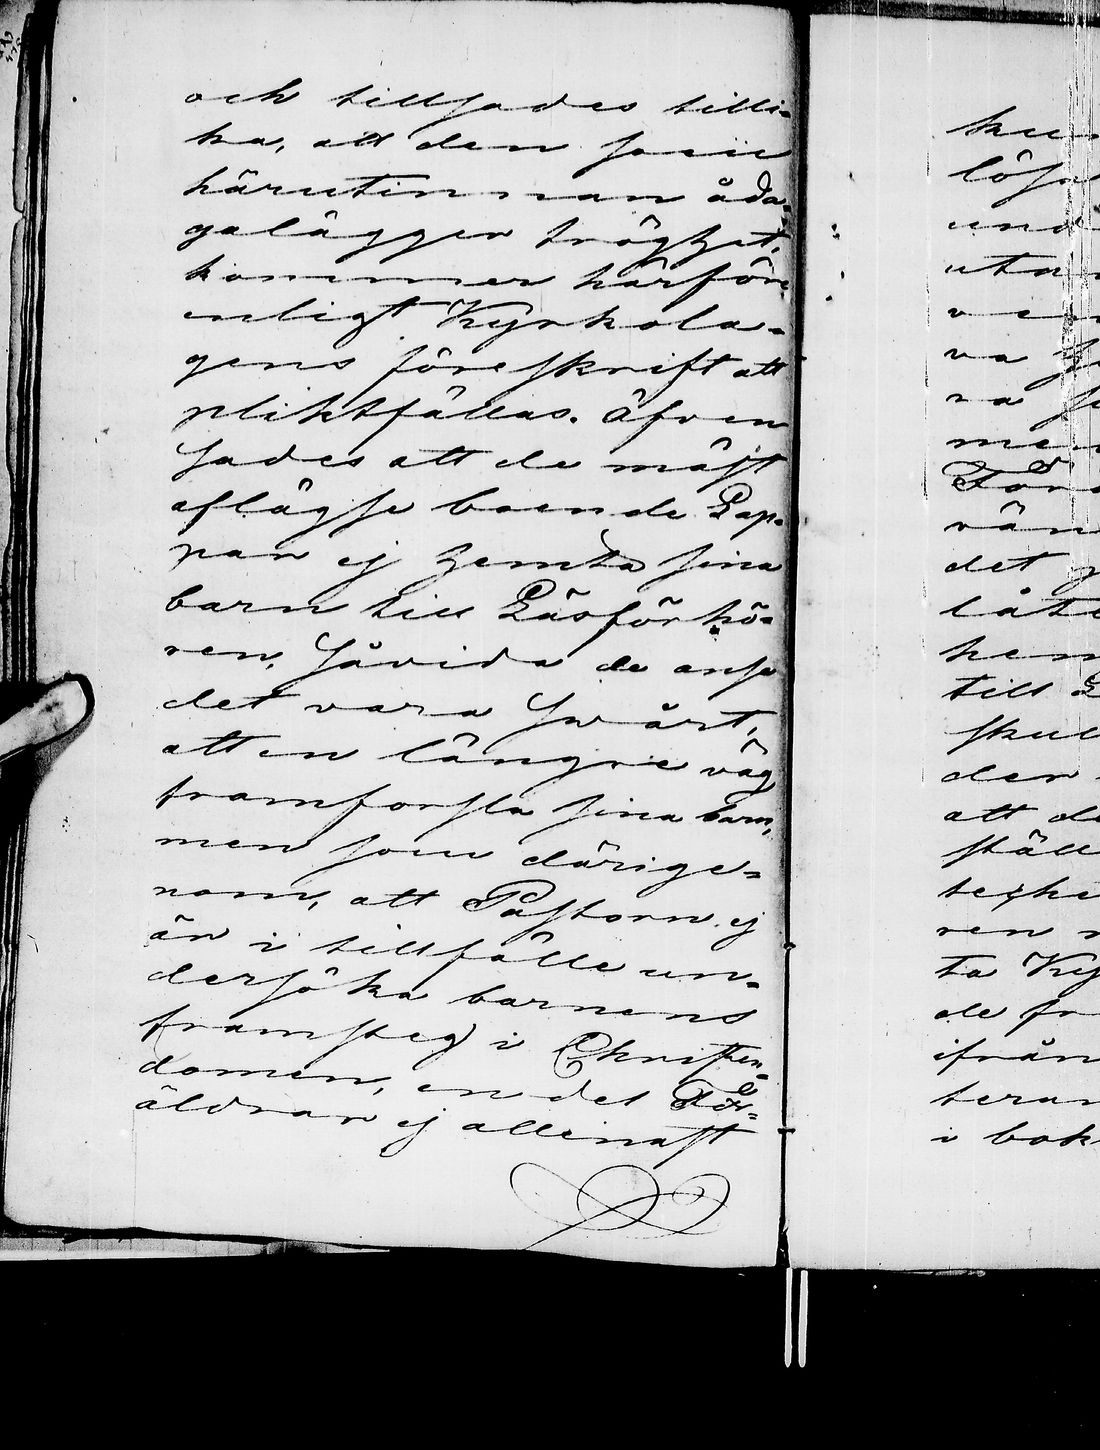 och tillsades tilli-
ka, att den som
härutinnan åda-
galägger tröghet,
kommer härföre
enligt Kyrkola-
gens föreskrift att
pliktfällas. Äfven
sades att de mäst
aflägse boende Lap-
par ej hemta sina
barn till Läsförhö-
ren, såvida de anse
det vara swårt,
att en längre väg
framforsla sina barn,
men som därige-
nom, att Pastorn ej
är i tillfälle un-
dersöka barnens
framsteg i Christen-
domen, en del För-
äldrar ej allenast
löse
und
uta
va
ra
men
För
vän
det
låte
hem
till L
skul
der
att de
ställ
ren
ta Ky
de fr
ifrån
teran
i bok